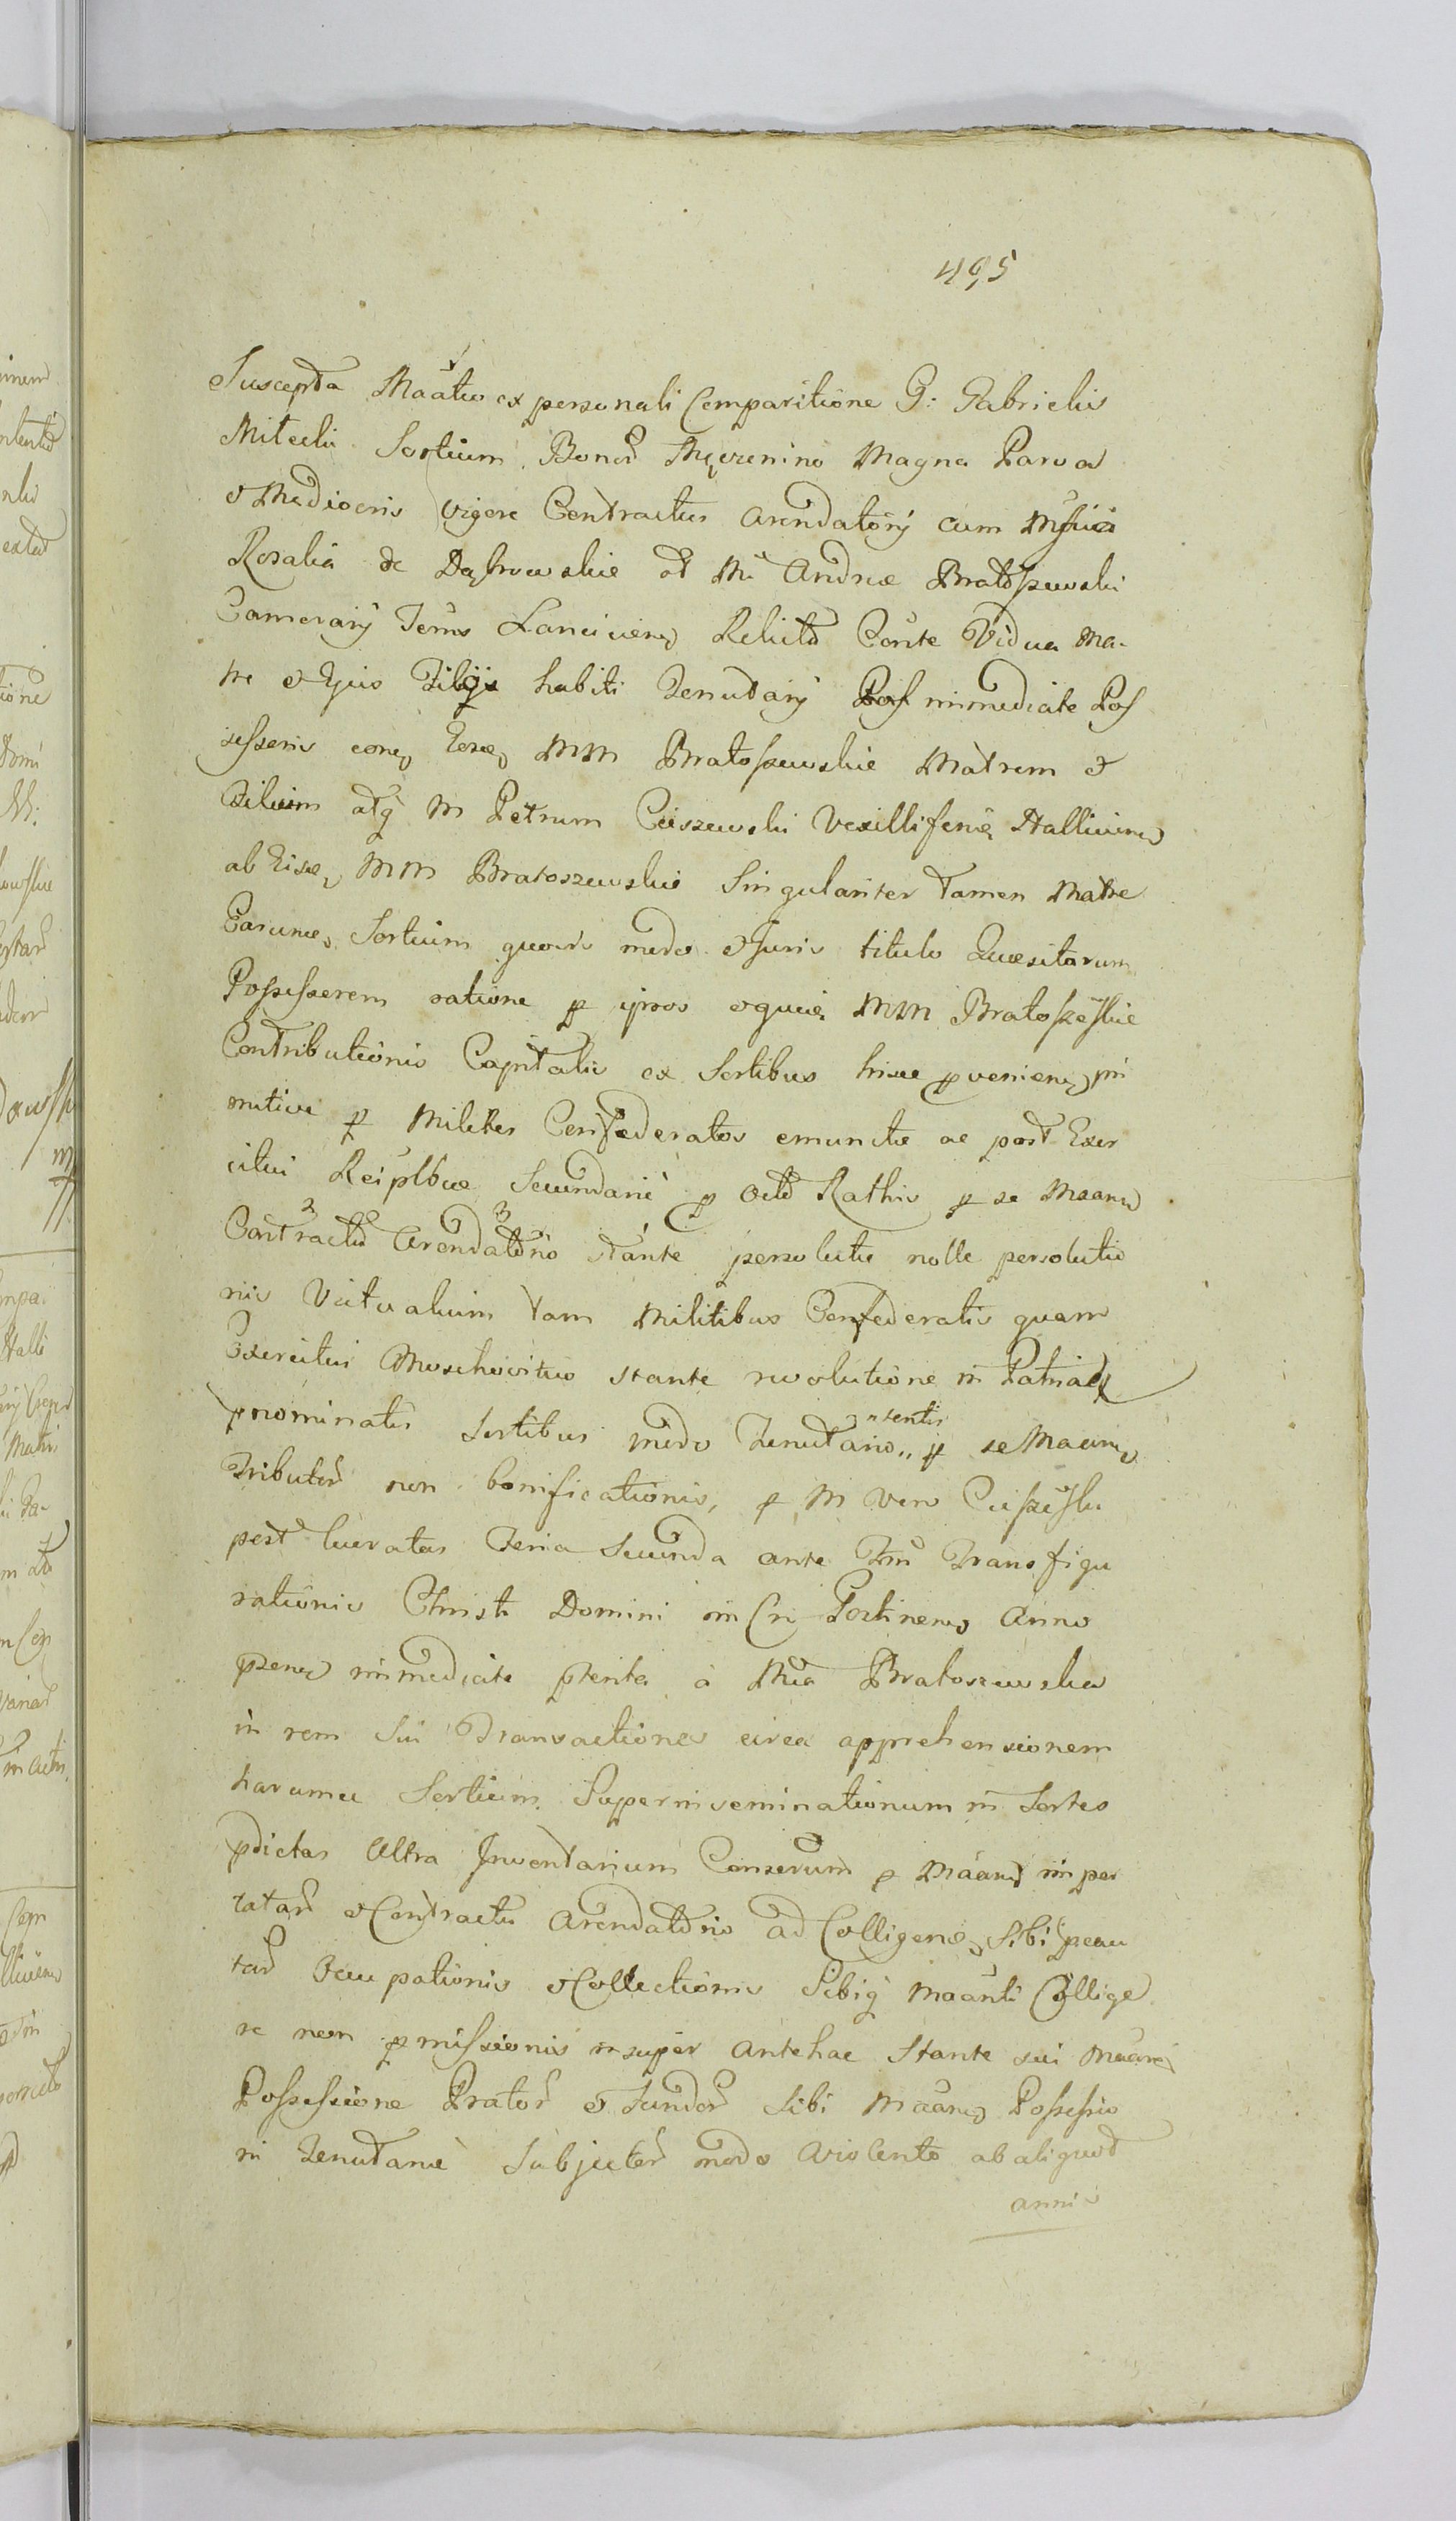 495
Suscepta Maātio ex personali Comparitione G: Gabrielis
Mitecki Sortium Bonor̄ Męcznino Magna Parva
& Mediocris vigore Contractus arendatorÿ cum Mfica
Rosalia de Dąbrowskie ad M Andreæ Bratoszewski
Camerarÿ Terrus Lanciciens Relicta Conte Vidua Ma-
tre & Ejus Filijs habiti Tenutarÿ Poss immediate Pos
sessoris conq Eosq MM Bratoszewskie Matrem &
Filium atq̄ M Petrum Cieszewski Vexilliferū Halliciens
ab Eisq MM Bratoszewskie Singulariter tamen Matre
Earume Sortium quovis modo & Juris titulo Quæsitarum
Possessorem ratione p ipsos & quē MM Bratoszeskie
Contributionis Capitalis ex Sortibus hisce pveniens pri
mitive p Milites Confœderatos emunctæ ac post Exer
citui Reiplbcæ Secundarie p octo Rathis p se Maans
Contractu Arendatorio stante persolutæ nolle persolutio
nis Victualium tam Militibus Confederatis quam
Exercitui Moschovitico stante revolutione in Patria ex
pnominatis Sortibus modo Tenutario,, tentis p se Maans
Tributor̄ non bonificationis, p M vero Cieszeski
post lucratas Feria Secunda ante Fm̄ Transfigu
rationis Christi Domini in Cri Postinens Anno
pzens immediate pterita a Mca Bratoszewska
in rem sui Transactiones circa apprehensionem
harumce Sortium Superinseminationum in Sortes
pdictas Ultra Inventarium Conserum p Maans imper
tatar̄ & Contractu Arendatorio ad Colligens Sibi pcau
tar̄ Occupationis & Collectionis Sibiq̄ Maanti Collige
re non pmissionis insuper antehac Stante sui Maans
Possessione Prator̄ & Fundor̄ Sibi Maans Possessio
ni Tenutariæ Subjector̄ modo violento ab aliquot
annis